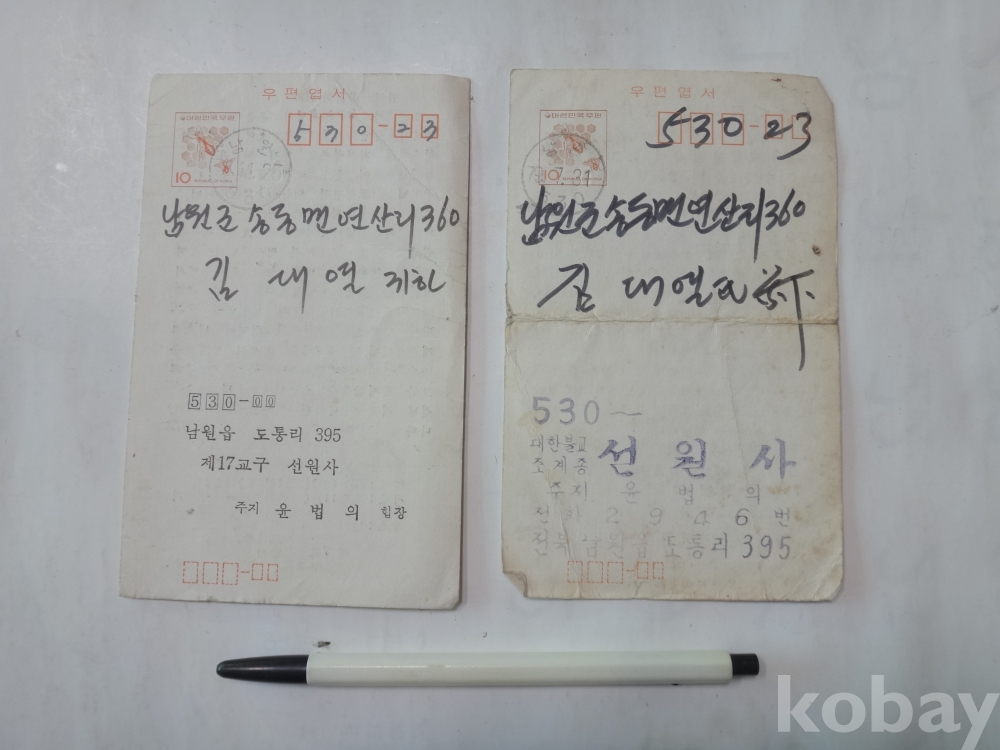 우편엽서
대한민국우편
10
530-23
남원군 송동면 연산리 360
김 대 열 귀하
530-00
남원읍 도통리 395
제17교구 선원사
주지 윤 법 의 합장
우편엽서
대한민국우편
10
7.31
530 23
남원군 송동면 연산리 360
김 대 열
530~
대한불교
조계종 선원사
주지 윤 법 의
전화 2946번
전북 남원읍 도통리 395
kobay